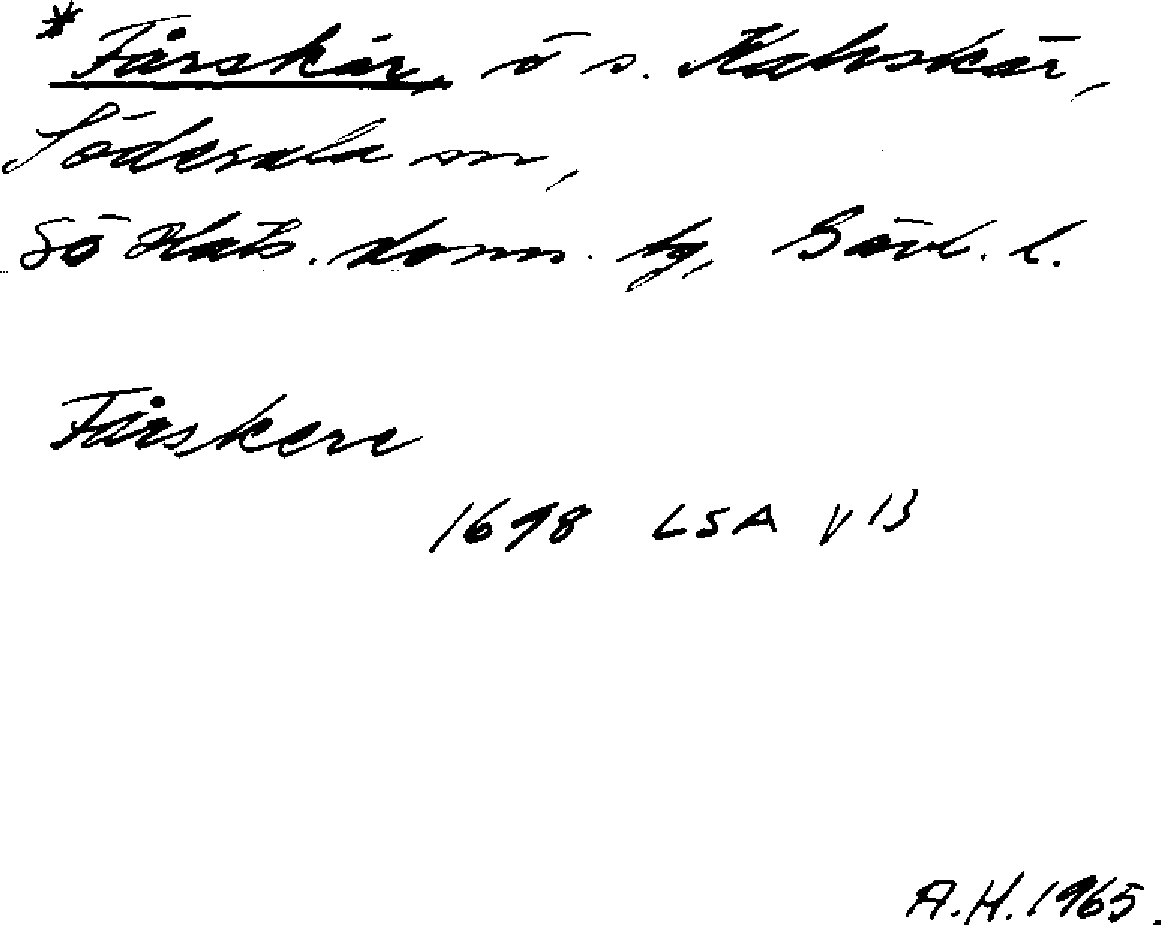 * Fårskär, ö s. Kalvskär,
Söderala sn,
Sö Häls. doms. tg, Gävl. l.
Fårskere
1698 LSA V 13
A.H. 1965.